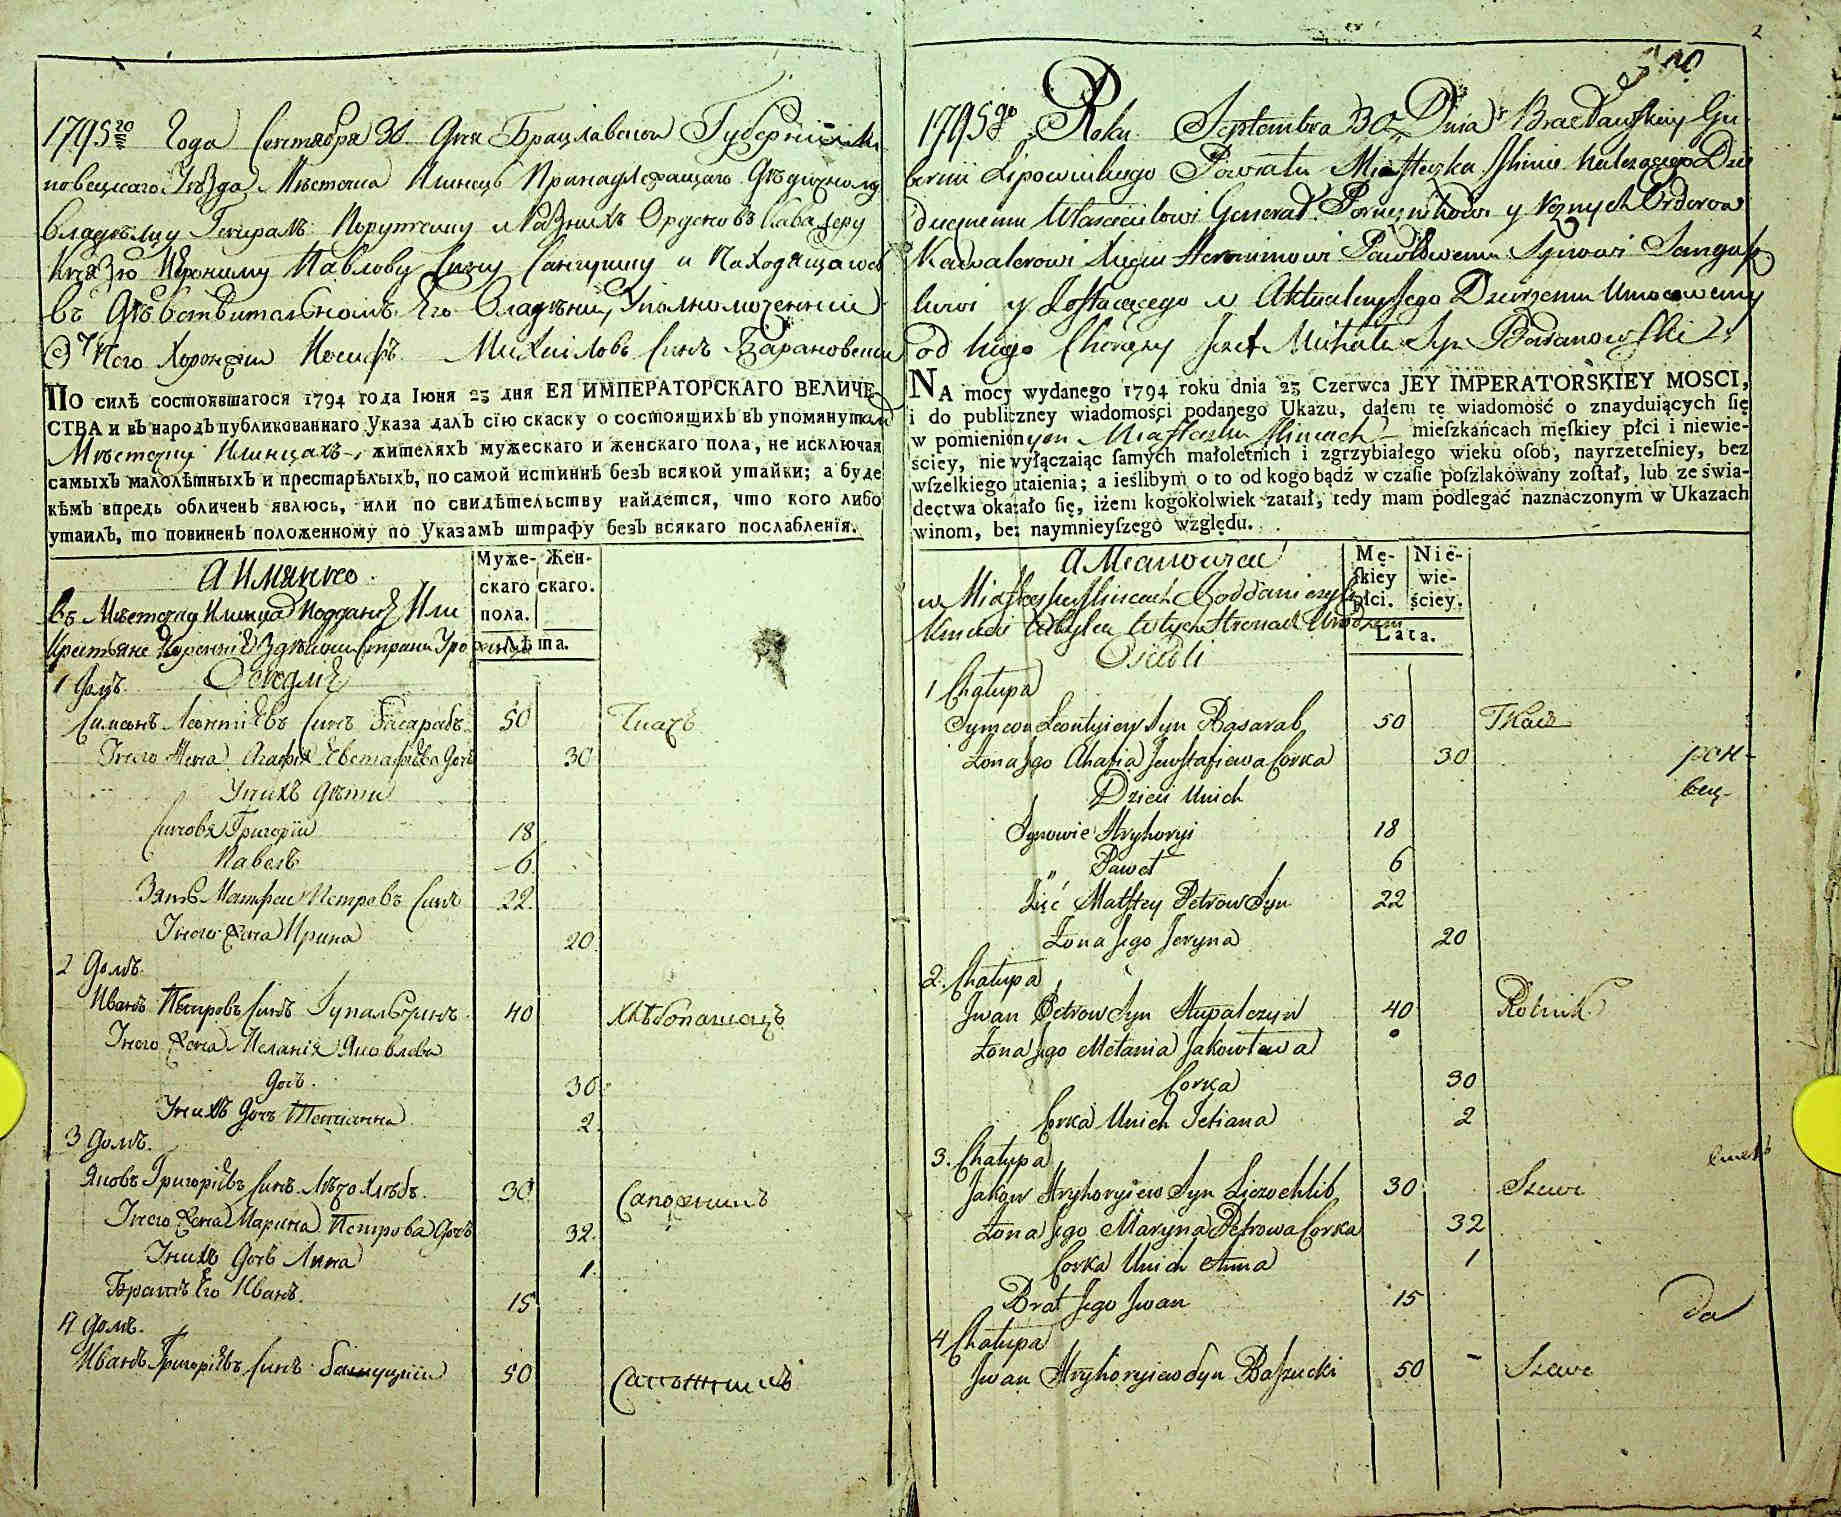 1795го Года Сентября 30 Дня Брацлавской Губернии Ли
повецкаго Уезда Местечка Илинец Принадлежащаго Дедичному
Владельцу Генерал Порутчику и Разных Орденов Кавалеру
Князю Иерониму Павлову Сину Сангушку и Находящагося
въ Действительном Его Владении, Уполномоченний
От Него Хоронжии Иосиф Михайлов Синъ Барановский
ПО силѣ состоявшагося 1794 года Іюня 23 дня ЕЯ ИМПЕРАТОРСКАГО ВЕЛИЧЕ-
СТВА и въ народъ публикованнаго Указа далъ сію скаску о состоящихъ въ упомянутом
Мѣстечку Илинцахъ, жителяхъ мужескаго и женскаго пола, не исключая
самыхъ малолѣтныхъ и престарѣлыхъ, по самой истиннѣ безъ всякой утайки; а буде
кѣмъ впредь обличенъ явлюсь, или по свидѣтельству найдется, что кого либо
утаилъ, то повиненъ положенному по Указамъ штрафу безъ всякаго послабленія.
А Имянно
Муже-скаго пола. Жен-скаго.
Лѣта.
въ Местечку Илинцах Подданіе Или
Крестьяне
Оседліе
1 Домъ.
Симонъ Леонтіевъ Синъ Басарабъ 50 Ткачъ
У него Жена Агафія Евстафіева Дочь 30
У них Дети
Синовя Григорій 18
Павелъ 6
Зять Матфеи Петровъ Синъ 22
У него жена Ирина 20
2 Домъ.
Иванъ Петровъ Синъ Гупальчинъ 40 Хлѣбопашецъ
У него жена Меланія Яковлева
Дочь. 30
У нихъ Дочь Тетианна 2
3 Домъ.
Яковъ Григоріевъ Синъ Лѣзохлѣбъ 30 Сапожникъ
У него жена Марина Петрова Дочь 32
У нихъ Дочь Анна 1
Братъ Его Иванъ 15
4 Домъ.
Иванъ Григоріевъ Синъ Башуцкій 50 Сапожникъ
2
1795go Roku Septembra 30 Dnia Bracławskiey Gu
bernii Lipowieckiego Powiatu Miasteczka Iliniec Należącego Dzie
dzicznemu Włascicielowi Generał Porucznikowi y Roznych Orderow
Kawalerowi Xięciu Heronimowi Pawłowemu Synowi Sangusz
kowi y Zostaiącego w Aktualnym Jego Dzierzeniu Umocowany
od Niego Chorąży Jozef Michała Syn Baranowski
NA mocy wydanego 1794 roku dnia 23 Czerwca JEY IMPERATORSKIEY MOSCI,
i do publiczney wiadomości podanego Ukazu, dałem tę wiadomość o znayduiących ſię
w pomienionym Miasteczku Ilincach mieſzkańcach męſkiey płci i niewie-
ściey, nie wyłączaiąc ſamych małoletnich i zgrzybiałego wieku oſob, nayrzetelniey, bez
wſzelkiego utaienia; a ieślibym o to od kogo bądź w czaſie poſzlakowany zoſtał, lub ze świa-
dectwa okazało ſię, iżem kogokolwiek zataił, tedy mam podlegać naznaczonym w Ukazach
winom, bez naymnieyſzego względu.
A Mianowicie
Mę-ſkiey płci. Nie-wie-ściey.
Lata.
w Miasteczku Ilincach Poddani czyli
Kmiecie
Osiedli
1 Chałupa
Symeon Leontyiew Syn Basarab 50 Tkacz
Zona Jego Ahafia Jewstafiewa Corka 30
Dzieci Unich
Synowie Hryhoryi 18
" Paweł 6
Zięć Matftey Petrow Syn 22
Zona Jego Jeryna 20
2. Chałupa
Jwan Petrow Syn Hupalczyn 40 Rolnik
Zona Jego Mełania Jakowlewa
Corka 30
Corka Unich Tetiana 2
3. Chałupa
Jakow Hryhoryiew Syn Lizochlib 30 Szewc
Zona Jego Maryna Petrowa Corka 32
Corka Unich Anna 1
Brat Jego Jwan 15
4 Chałupa
Jwan Hryhoryiew Syn Baszucki 50 - Szewc